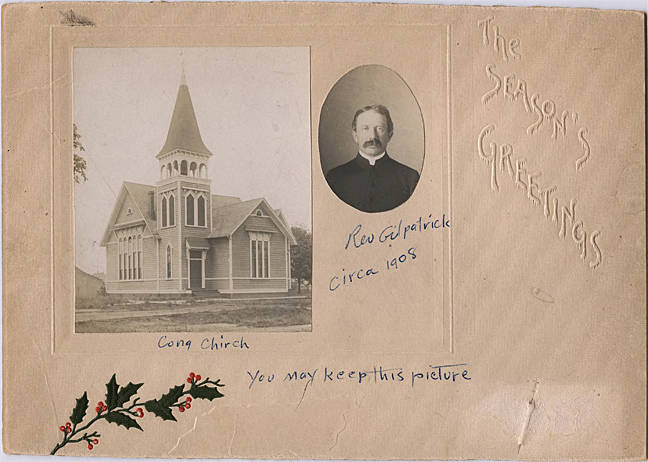 The
SEASON'S
GREETINGS
Rev Gilpatrick
Circa 1908
Cong Chirch
You may keep this picture